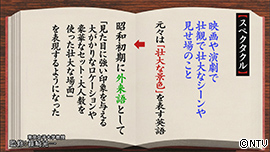 【スペクタクル】
映画や演劇で
壮観で壮大なシーンや
見せ場のこと
元々は「壮大な景色」を表す英語
昭和初期に外来語として
「見た目に強い印象を与える
大がかりなロケーションや
豪華なセット・大人数を
使った壮大な場面」
を表現するようになった
©NTV